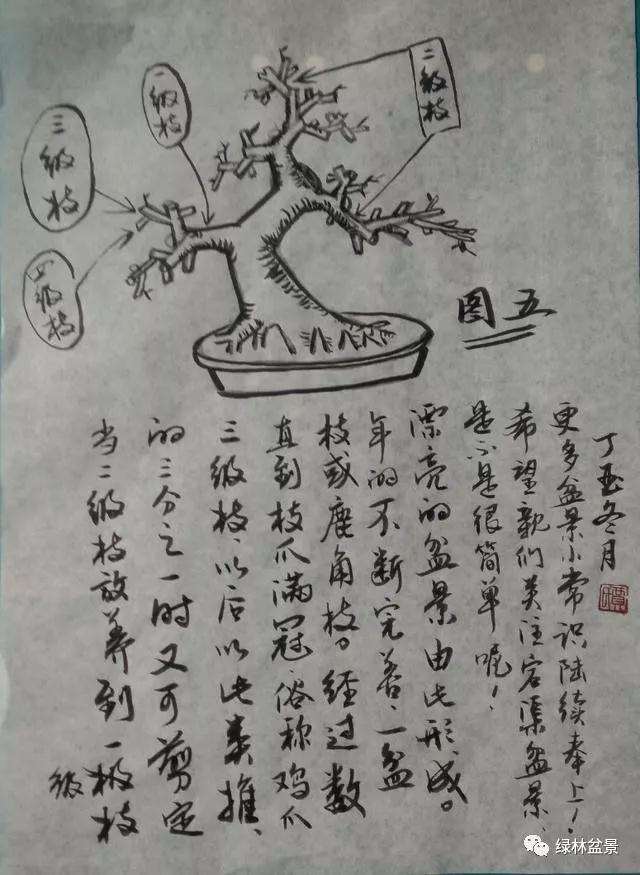 三级枝
一级枝
二级枝
图五
当二级枝放养到一极枝
级
的三分之一时又可剪定
三级枝、以后以此类推、
直到枝爪满冠、俗称鸡爪
枝或鹿角枝。经过数
年的不断完善、一盆
漂亮的盆景由此形成。
是不是很简单呢!
希望亲们关注宕渠盆景
更多盆景小常识陆续奉上!
丁酉冬月
绿林盆景